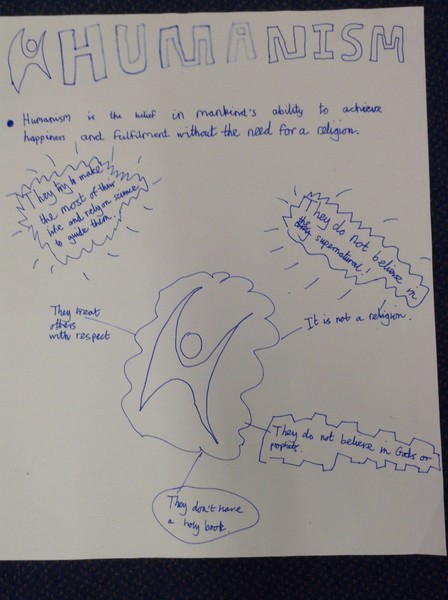 HUMANISM
Humanism is the belief in mankind's ability to achieve
happiness and fulfilment without the need for a religion.
They try to make
the most of their
life and rely on science
to guide them.
They do not believe in
the supernatural!
They treat
others
with respect
It is not a religion.
They do not believe in Gods or
prophets.
They don't have
a holy book.